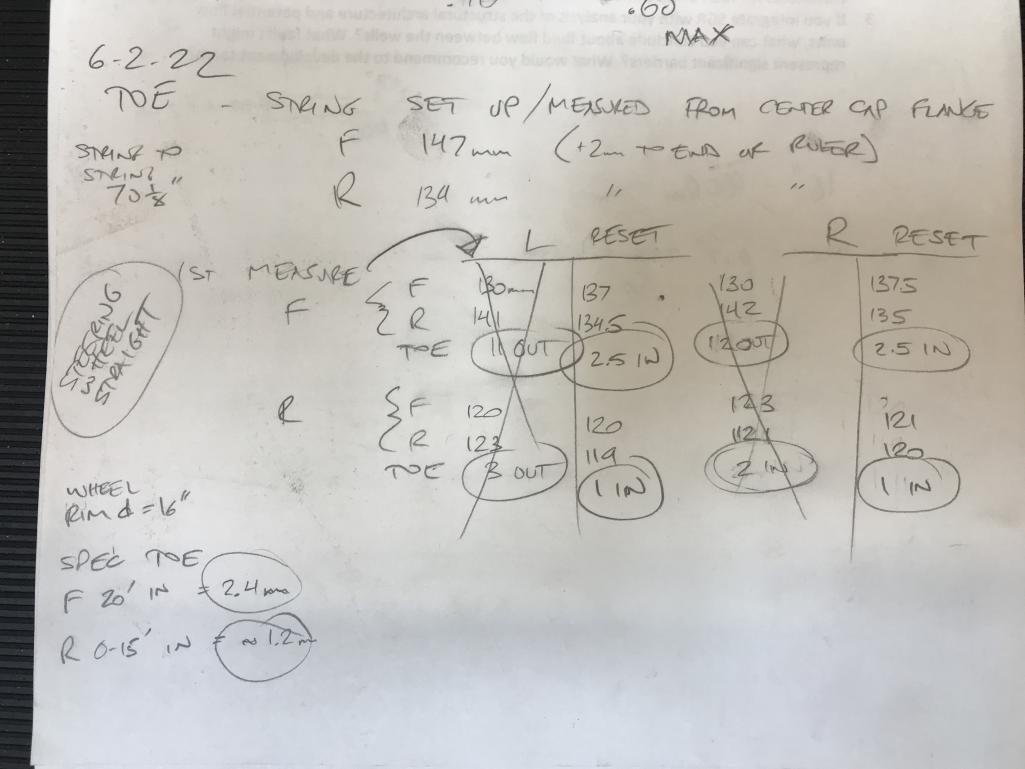 .60
MAX
6-2-22
TOE - STRING SET UP/MEASURED FROM CENTER CAP FLANGE
STRING TO STRING 70 1/8" F 147mm (+2mm TO END OF RULER)
R 134 mm " "
L RESET R RESET
STEERING WHEEL STRAIGHT
1ST MEASURE
F { F 130mm 137 130 137.5
R 141 134.5 142 135
TOE 11 OUT 2.5 IN 12 OUT 2.5 IN
R { F 120 120 123 121
R 123 119 121 120
TOE 3 OUT 1 IN 2 IN 1 IN
WHEEL
RIM d = 16"
SPEC TOE
F 20' IN = 2.4mm
R 0-15' IN = ~1.2m